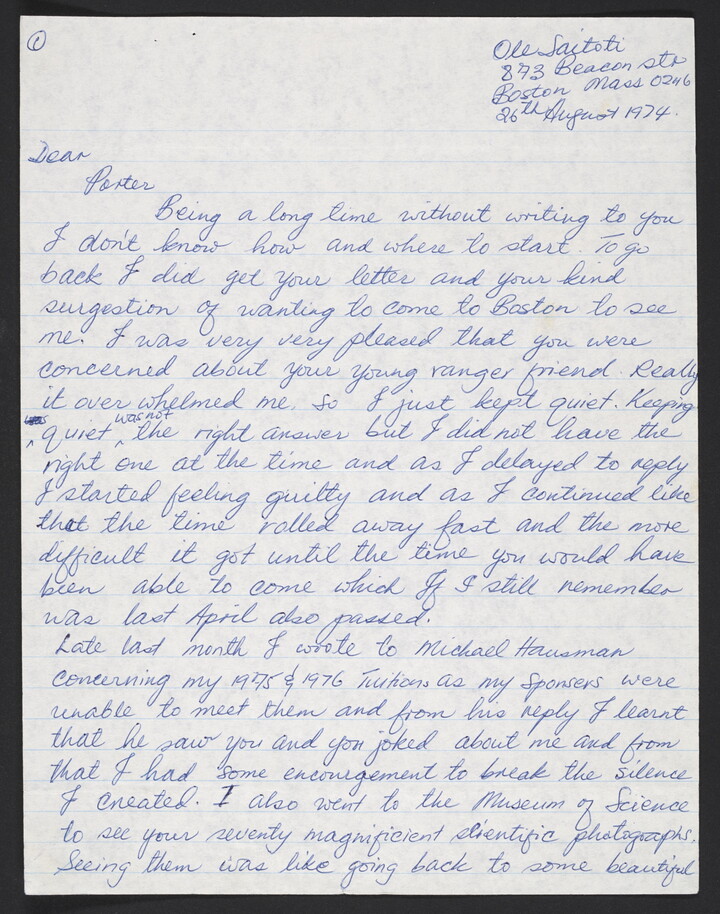 ①
Ole Saitoti
873 Beacon str
Boston Mass 02146
26th August 1974.
Dear
Porter
Being a long time without writing to you
I don't know how and where to start. To go
back I did get your letter and your kind
surgestion of wanting to come to Boston to see
me. I was very very pleased that you were
concerned about your young ranger friend. Really
it over whelmed me. So I just kept quiet. Keeping
quiet was not the right answer but I did not have the
right one at the time and as I delayed to reply
I started feeling guilty and as I continued like
that the time rolled away fast and the more
difficult it got until the time you would have
been able to come which If I still remember
was last April also passed.
Late last month I wrote to Michael Hausman
concerning my 1975 & 1976 Tuitions as my Sponsers were
unable to meet them and from his reply I learnt
that he saw you and you joked about me and from
that I had some encouregement to break the silence
I created. I also went to the Museum of Science
to see your seventy magnificient scientific photographs.
Seeing them was like going back to some beautiful